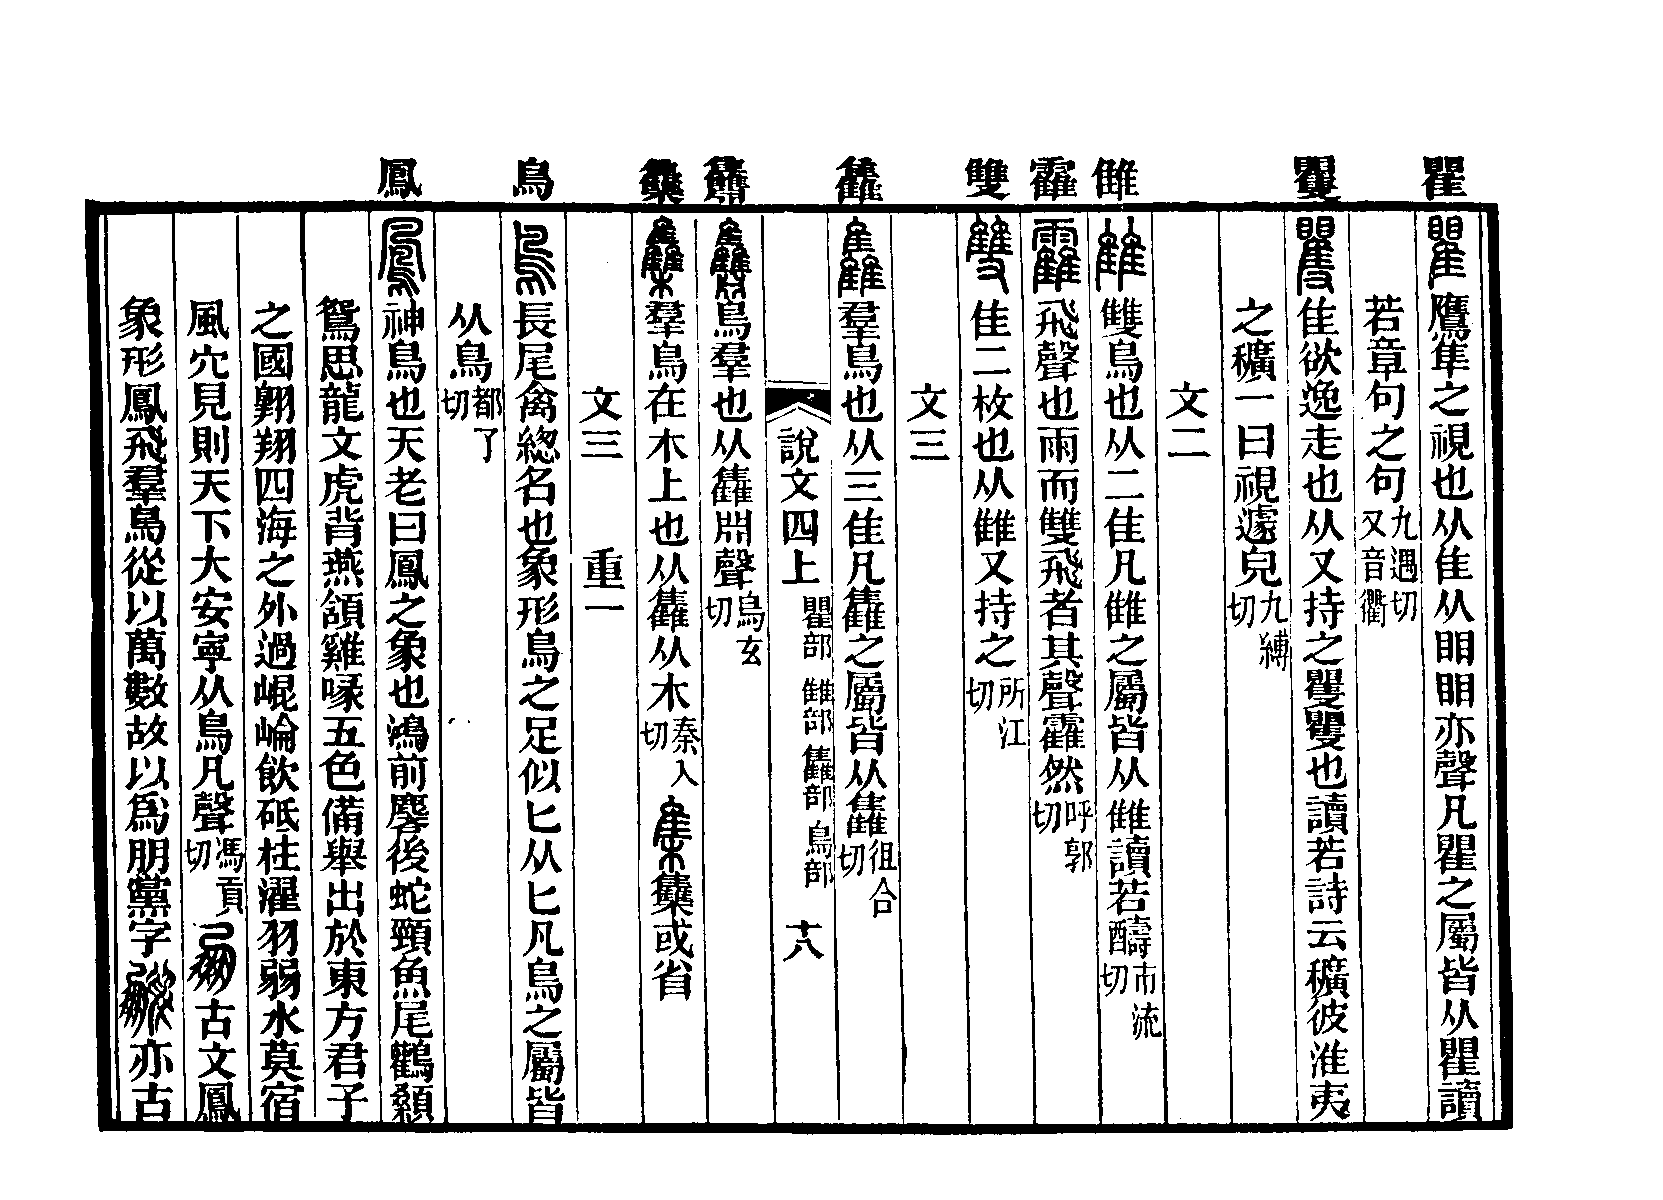 瞿 矍 雔 靃 雙 雥 𪆫 雧 鳥 鳳
瞿 鷹隼之視也从隹从䀠䀠亦聲凡瞿之屬皆从瞿讀
若章句之句九遇切又音衢
矍 隹欲逸走也从又持之矍矍也讀若詩云穬彼淮夷
之穬一曰視遽皃九縛切
文二
雔 雙鳥也从二隹凡雔之屬皆从雔讀若醻市流切
靃 飛聲也雨而雙飛者其聲靃然呼郭切
雙 隹二枚也从雔又持之所江切
文三
雥 羣鳥也从三隹凡雥之屬皆从雥徂合切
說文四上 瞿部 雔部 雥部 鳥部 十八
𪆫 鳥羣也从雥𣶒聲烏玄切
雧 羣鳥在木上也从雥从木秦入切 集 雧或省
文三 重一
鳥 長尾禽緫名也象形鳥之足似匕从匕凡鳥之屬皆
从鳥都了切
鳳 神鳥也天老曰鳳之象也鴻前麐後蛇頸魚尾鸛顙
鴛思龍文虎背燕頷雞喙五色備舉出於東方君子
之國翺翔四海之外過崐崘飲砥柱濯羽弱水莫宿
風穴見則天下大安寧从鳥凡聲馮貢切 朋 古文鳳
象形鳳飛羣鳥從以萬數故以爲朋黨字 鵬 亦古